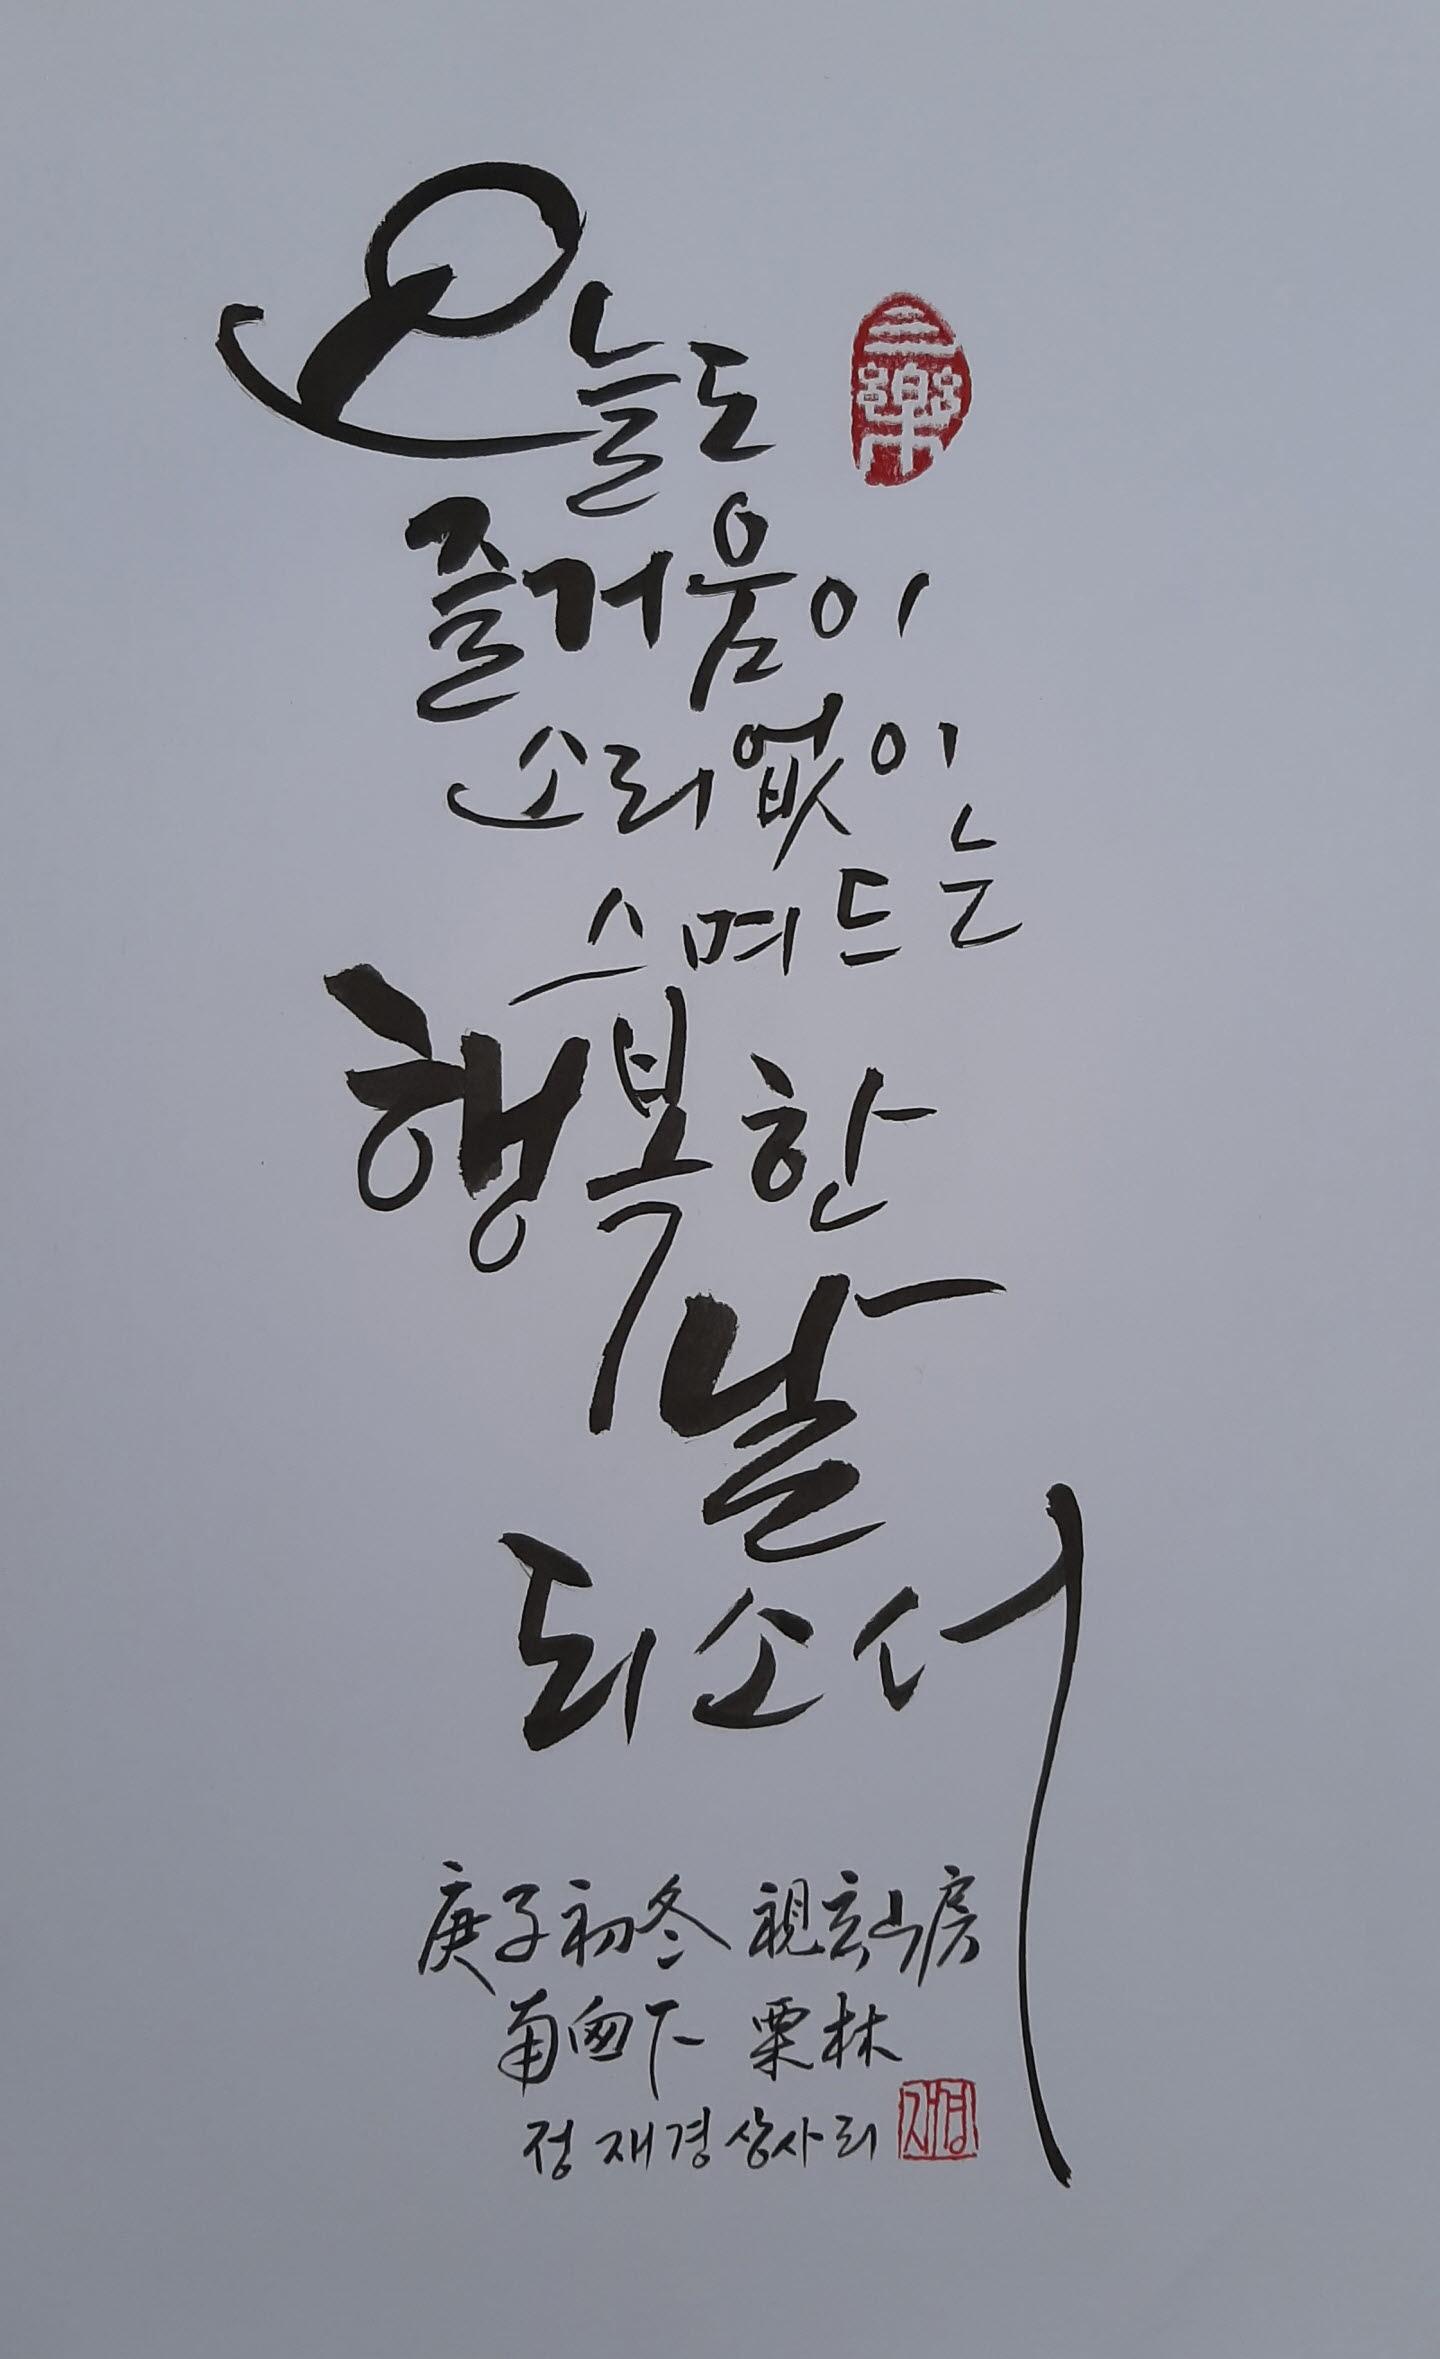 오늘도
三樂
즐거움이
소리없이
스며드는
행복한
날
되소서
庚子初冬 視玄山房
南窗下 栗林
정재경 상사리
재경